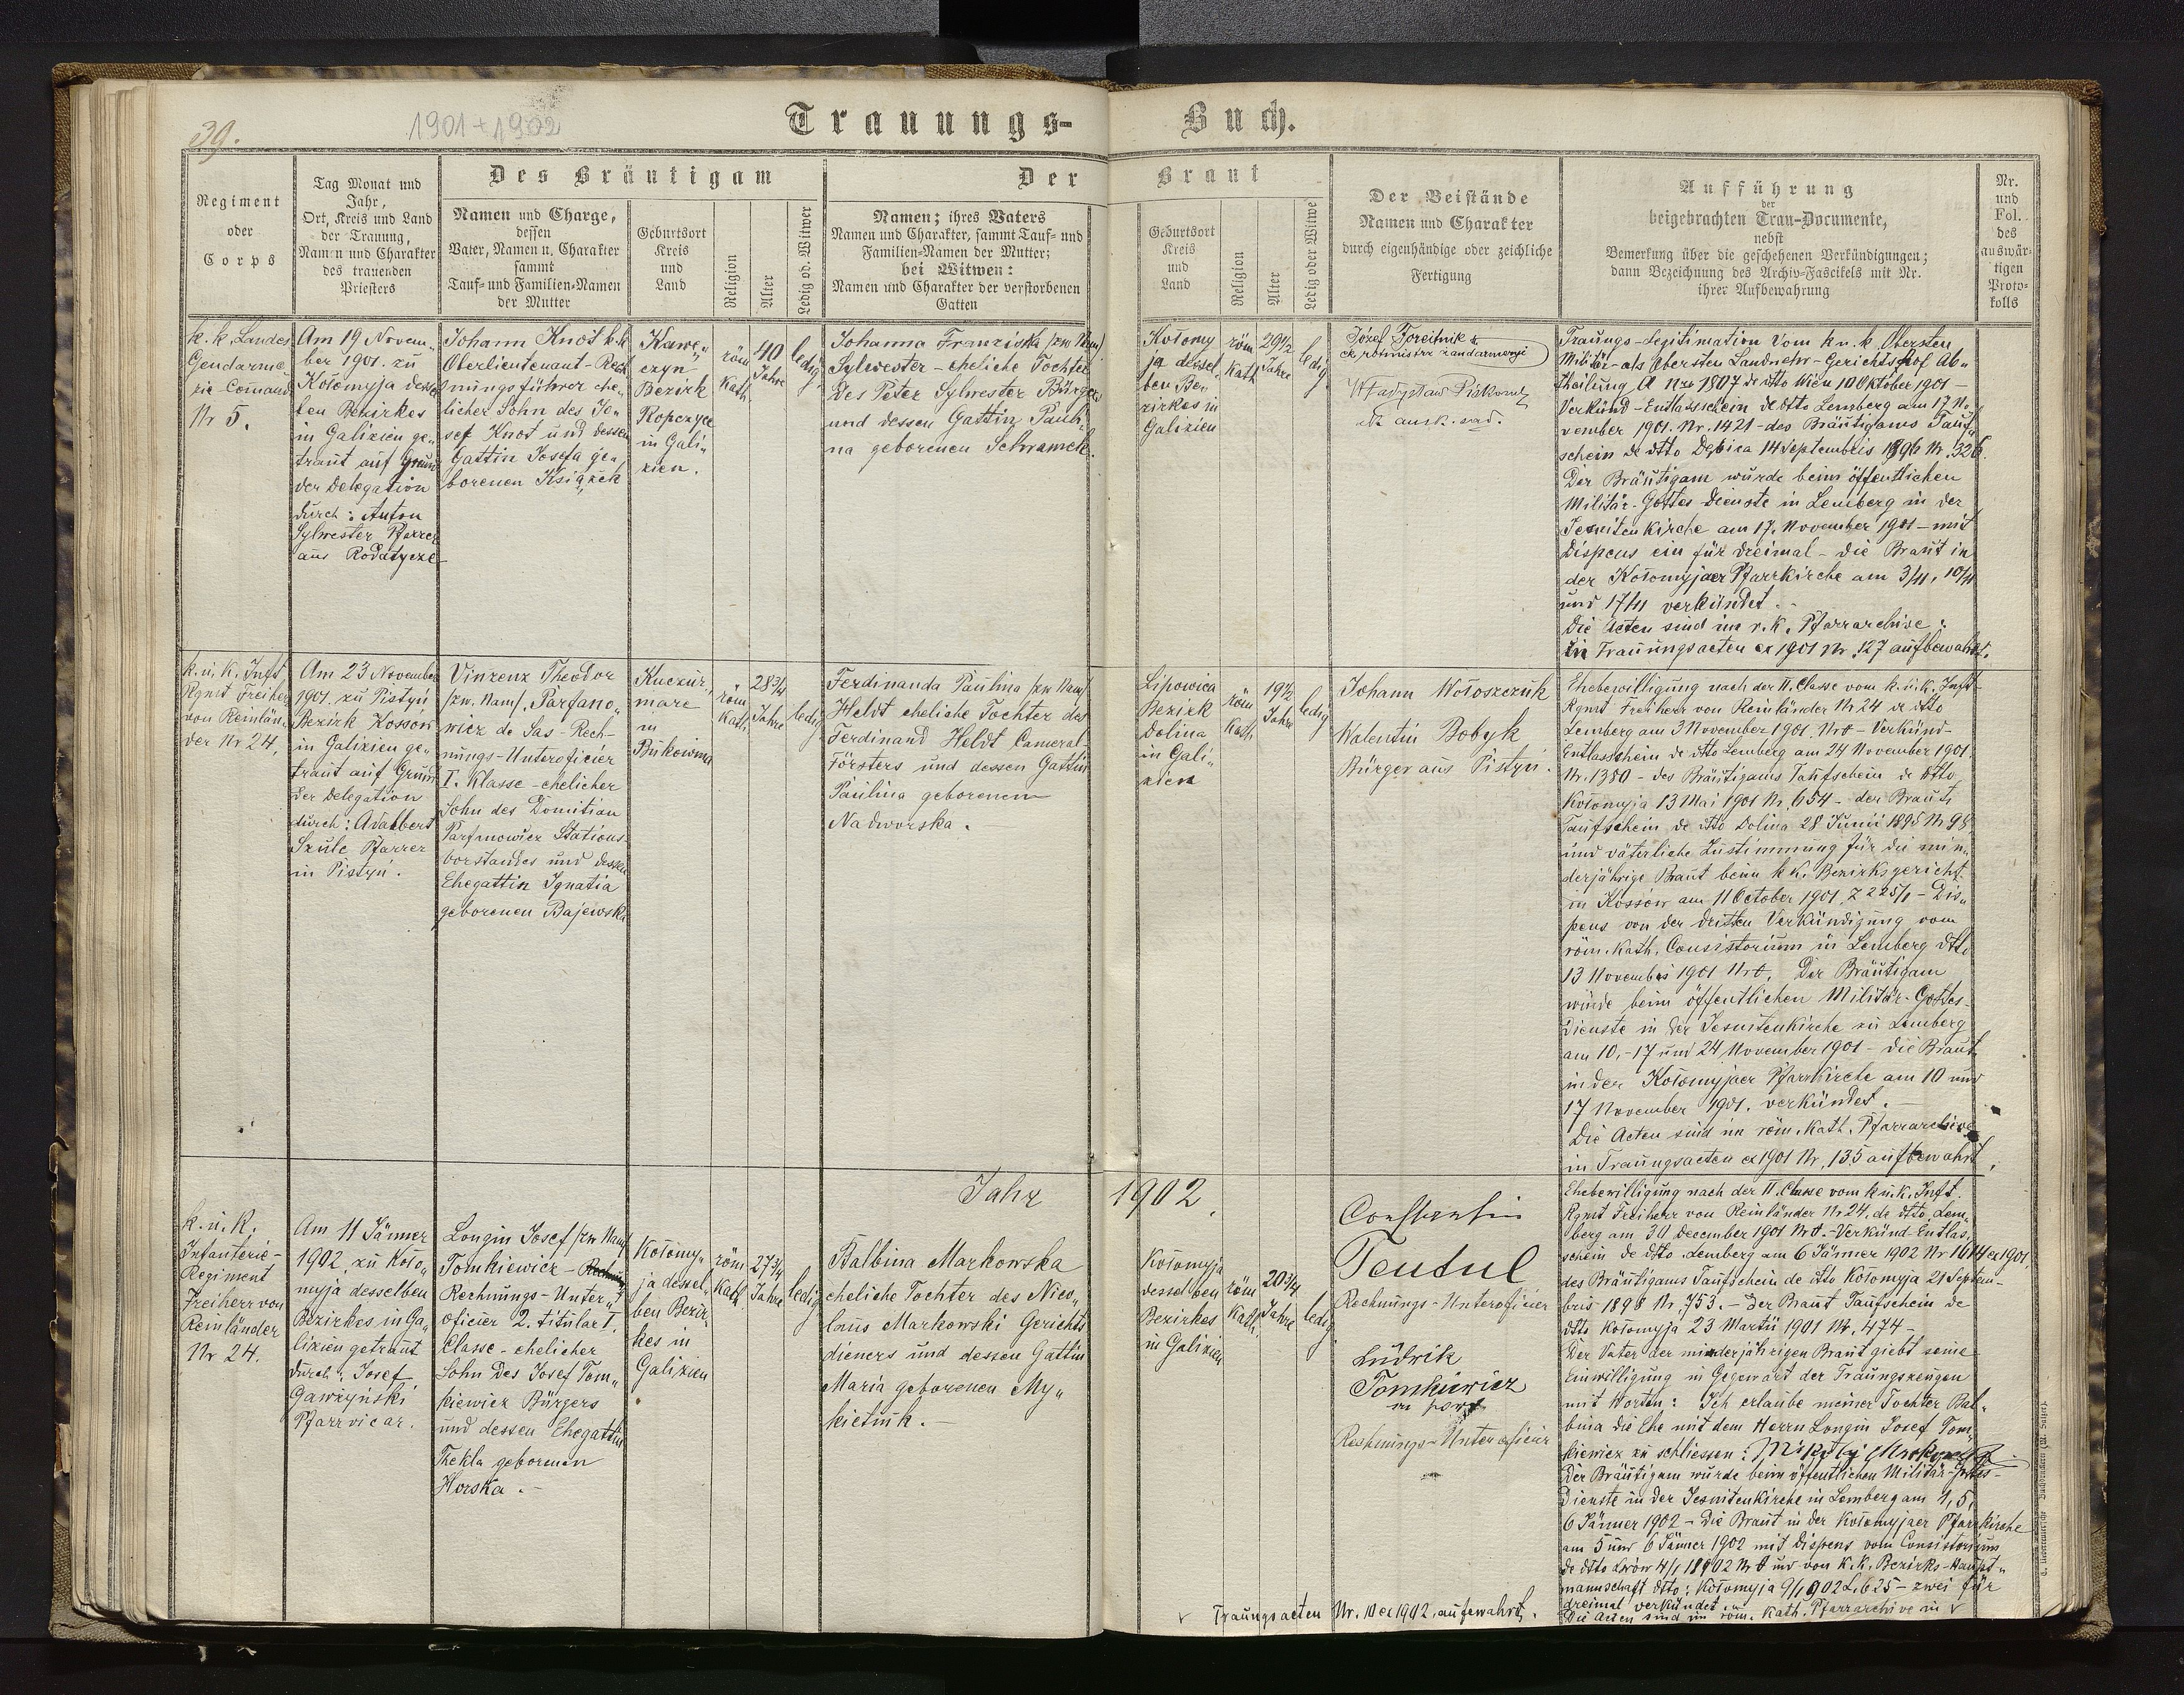 39.
1901 + 1902
Trauungs-Buch.
Regiment
oder
Corps
Tag Monat und
Jahr,
Ort, Kreis und Land
der Trauung,
Namen und Charakter
des trauenden
Priesters
Des Bräutigam
Namen und Charge,
dessen
Vater, Namen u. Charakter
sammt
Tauf- und Familien-Namen
der Mutter
Geburtsort
Kreis
und
Land
Religion
Alter
Ledig od. Witwer
Der Braut
Namen; ihres Vaters
Namen und Charakter, sammt Tauf- und
Familien-Namen der Mutter;
bei Witwen:
Namen und Charakter der verstorbenen
Gatten
Geburtsort
Kreis
und
Land
Religion
Alter
Ledig oder Witwe
Der Beistände
Namen und Charakter
durch eigenhändige oder zeichliche
Fertigung
Aufführung
der
beigebrachten Trau-Documente,
nebst
Bemerkung über die geschehenen Verkündigungen;
dann Bezeichnung des Archiv-Fascikels mit Nr.
ihrer Aufbewahrung
Nr.
und
Fol.
des
auswär-
tigen
Proto-
kolls
k. k. Landes
Gendarme-
rie-Comand
Nr 5.
Am 19 Novem„
ber 1901. zu
Kołomyja dessel
ben Bezirkes
in Galizien ge„
traut auf Grund
der Delegation
durch: Anton
Sylwester Pfarrer
aus Rodatycze
Johann Knot k.k
Oberlieutenant-Rech
nungsführer ehe„
licher Sohn des Jo„
sef Knot und dessen
Gattin Josefa ge„
borenen Książek
Kawę„
czyn
Bezirk
Ropczyce
in Gali„
zien.
röm
kath.
40
Jahre
ledig
Johanna Franziska (zw. Nam)
Sylwester - eheliche Tochter
des Peter Sylwester Bürgers
und dessen Gattin Pauli„
na geborenen Schramek.
Kołomy
ja dessel„
ben Be„
zirkes in
Galizien
röm
kath
29½
Jahre
ledig
Józef Foreitnik
ck rotmistrz żandarmeryi
Władysław
ck ausk. sąd.
Trauungs-Legitimation vom k u. k. Obersten
Militär- als Obersten Landwehr-Gerichtshof Ab„
theilung A Nro 1807 de dtto Wien 10 Oktober 1901 -
Verkünd-Entlassschein de dtto Lemberg am 17 No„
vember 1901. Nr. 1421 - des Bräutigams Tauf„
schein de dtto Dębica 14 Septembris 1896 Nr. 326.
Der Bräutigam wurde beim öffentlichen
Militär-Gottes-dienste in Lemberg in der
Jesuitenkirche am 17. November 1901 - mit
Dispens ein für dreimal - die Braut in
der Kołomyjaer Pfarrkirche am 3/11, 10/11
und 17/11 verkündet.
Die Acten sind im r. k. Pfarrarchive:
in Trauungsacten ex 1901 Nr. 127 aufbewahrt.
k. u. k. Inft
Rgmt Freiherr
von Reinlän„
der Nr 24,
Am 23 November
1901. zu Pistyń
Bezirk Kossów
in Galizien ge„
traut auf Grund
der Delegation
durch: Adalbert
Szulc Pfarrer
in Pistyń.
Vinzenz Theodor
(zw. Nam). Parfano„
wicz de Sas - Rech-
nungs-Unteroficier
I. Klasse - ehelicher
Sohn des Domitian
Parfanowicz Stations-
vorstandes und dessen
Ehegattin Ignatia
geborenen Bajewska
Kuczur„
mare
in
Bukowina
röm
kath
28¾
Jahre
ledig
Ferdinanda Paulina (zw Nam)
Heldt eheliche Tochter des
Ferdinand Heldt Cameral-
försters und dessen Gattin
Paulina geborenen
Nadworska.
Lipowica
Bezirk
Dolina
in Gali„
zien
röm
kath
19½
Jahre
ledig
Johann Wołoszczuk
Walentin Bobyk
Bürger aus Pistyń.
Ehebewilligung nach der II. Classe vom k. u. k. Inft-
Rgmt Freiherr von Reinländer Nr 24 de dtto
Lemberg am 3 November 1901. Nr 0 - Verkünd-
Entlassschein de dtto Lemberg am 24 November 1901.
Nr. 1380 - des Bräutigams Taufschein de dtto
Kołomyja 13 Mai 1901 Nr. 654 - der Braut
Taufschein de dtto Dolina 28 Junii 1898 Nr 98
und väterliche Zustimmung für die min„
derjährige Braut beim k k. Bezirksgericht
in Kossów am 11 October 1901. Z 225/1 - Dis„
pens von der dritten Verkündigung vom
röm. kath. Consistorium in Lemberg dtto
13 November 1901 Nr 0. Der Bräutigam
wurde beim öffentlichen Militär-Gottes-
dienste in der Jesuitenkirche zu Lemberg
am 10, - 17 und 24 November 1901 - die Braut
in der Kołomyjaer Pfarrkirche am 10 und
17 November 1901. verkündet.
Die Acten sind im röm. kath. Pfarrarchive
in Trauungsacten ex 1901 Nr, 135 aufbewahrt.
Jahr 1902.
k. u. k.
Infanterie-
Regiment
Freiherr von
Reinländer
Nr 24.
Am 11 Jänner
1902. zu Koło„
myja desselben
Bezirkes in Ga„
lizien getraut
durch: Josef
Gawżyński
Pfarrvicar.
Longin Josef (zw Nam)
Tomkiewicz -
Rechnungs-Unter„
oficier 2. titular I.
Classe - ehelicher
Sohn des Josef Tom„
kiewicz Bürgers
und dessen Ehegattin
Thekla geborenen
Horska.-
Kołomy„
ja dessel„
ben Bezir„
kes in
Galizien
röm
kath
27¾
Jahre
ledig
Balbina Markowska
eheliche Tochter des Nico„
laus Markowski Gerichts
dieners und dessen Gattin
Maria geborenen My„
kietiuk.-
Kołomyja
desselben
Bezirkes
in Galizien
röm
kath
20¾
Jahre
ledig
Constantin
Teutul
Rechnungs-Unteroficier
Ludwik
Tomkiewicz
Rechnungs-Unteroficier
Ehebewilligung nach der II. Classe vom k u. k. Inft.
Rgmt Freiherr von Reinländer Nr 24. de dtto Lem„
berg am 30 December 1901 Nr 0. - Verkünd-Entlas„
schein de dtto Lemberg am 6 Jänner 1902 Nr 1614 ex 1901,
des Bräutigams Taufschein de dtto Kołomyja 21 Septem-
bris 1898 Nr, 753. - der Braut Taufschein de
dtto Kołomyja 23 Martii 1901 Nr. 474 -
Der Vater der minderjährigen Braut giebt seine
Einwilligung in Gegenwart der Trauungszeugen
mit Worten: Ich erlaube meiner Tochter Bal„
bina die Ehe mit dem Herrn Longin Josef Tom„
kiewicz zu schliessen:
Der Bräutigam wurde beim öffentlichen Militär-Gottes-
dienste in der Jesuitenkirche in Lemberg am 1, 5,
6 Jänner 1902 - Die Braut in der Kołomyjaer Pfarrkirche
am 5 und 6 Jänner 1902 mit Dispens vom Consistorium
de dtto Lwów 4/1 1902 Nr 0 und von k. k. Bezirks-Haupt„
mannschaft dtto: Kołomyja 9/1 902 L. 625 - zwei für
dreimal verkündet.
Die Acten sind im röm. kath. Pfarrarchive in v
v Trauungsacten Nr. 10 ex 1902, aufewahrt.